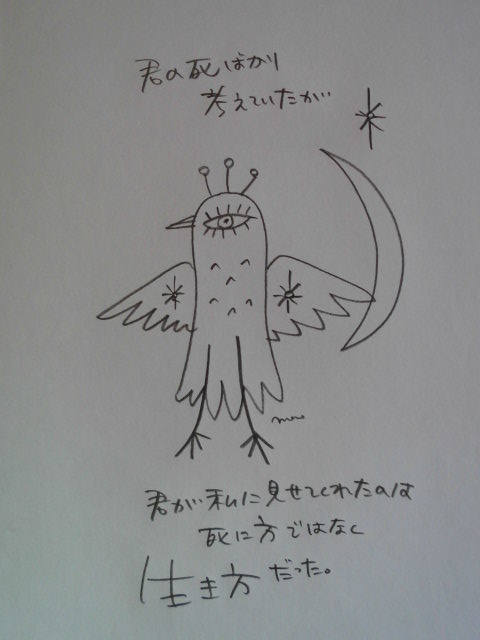 君の死ばかり
考えていたが
君が私に見せてくれたのは
死に方ではなく
生き方だった。